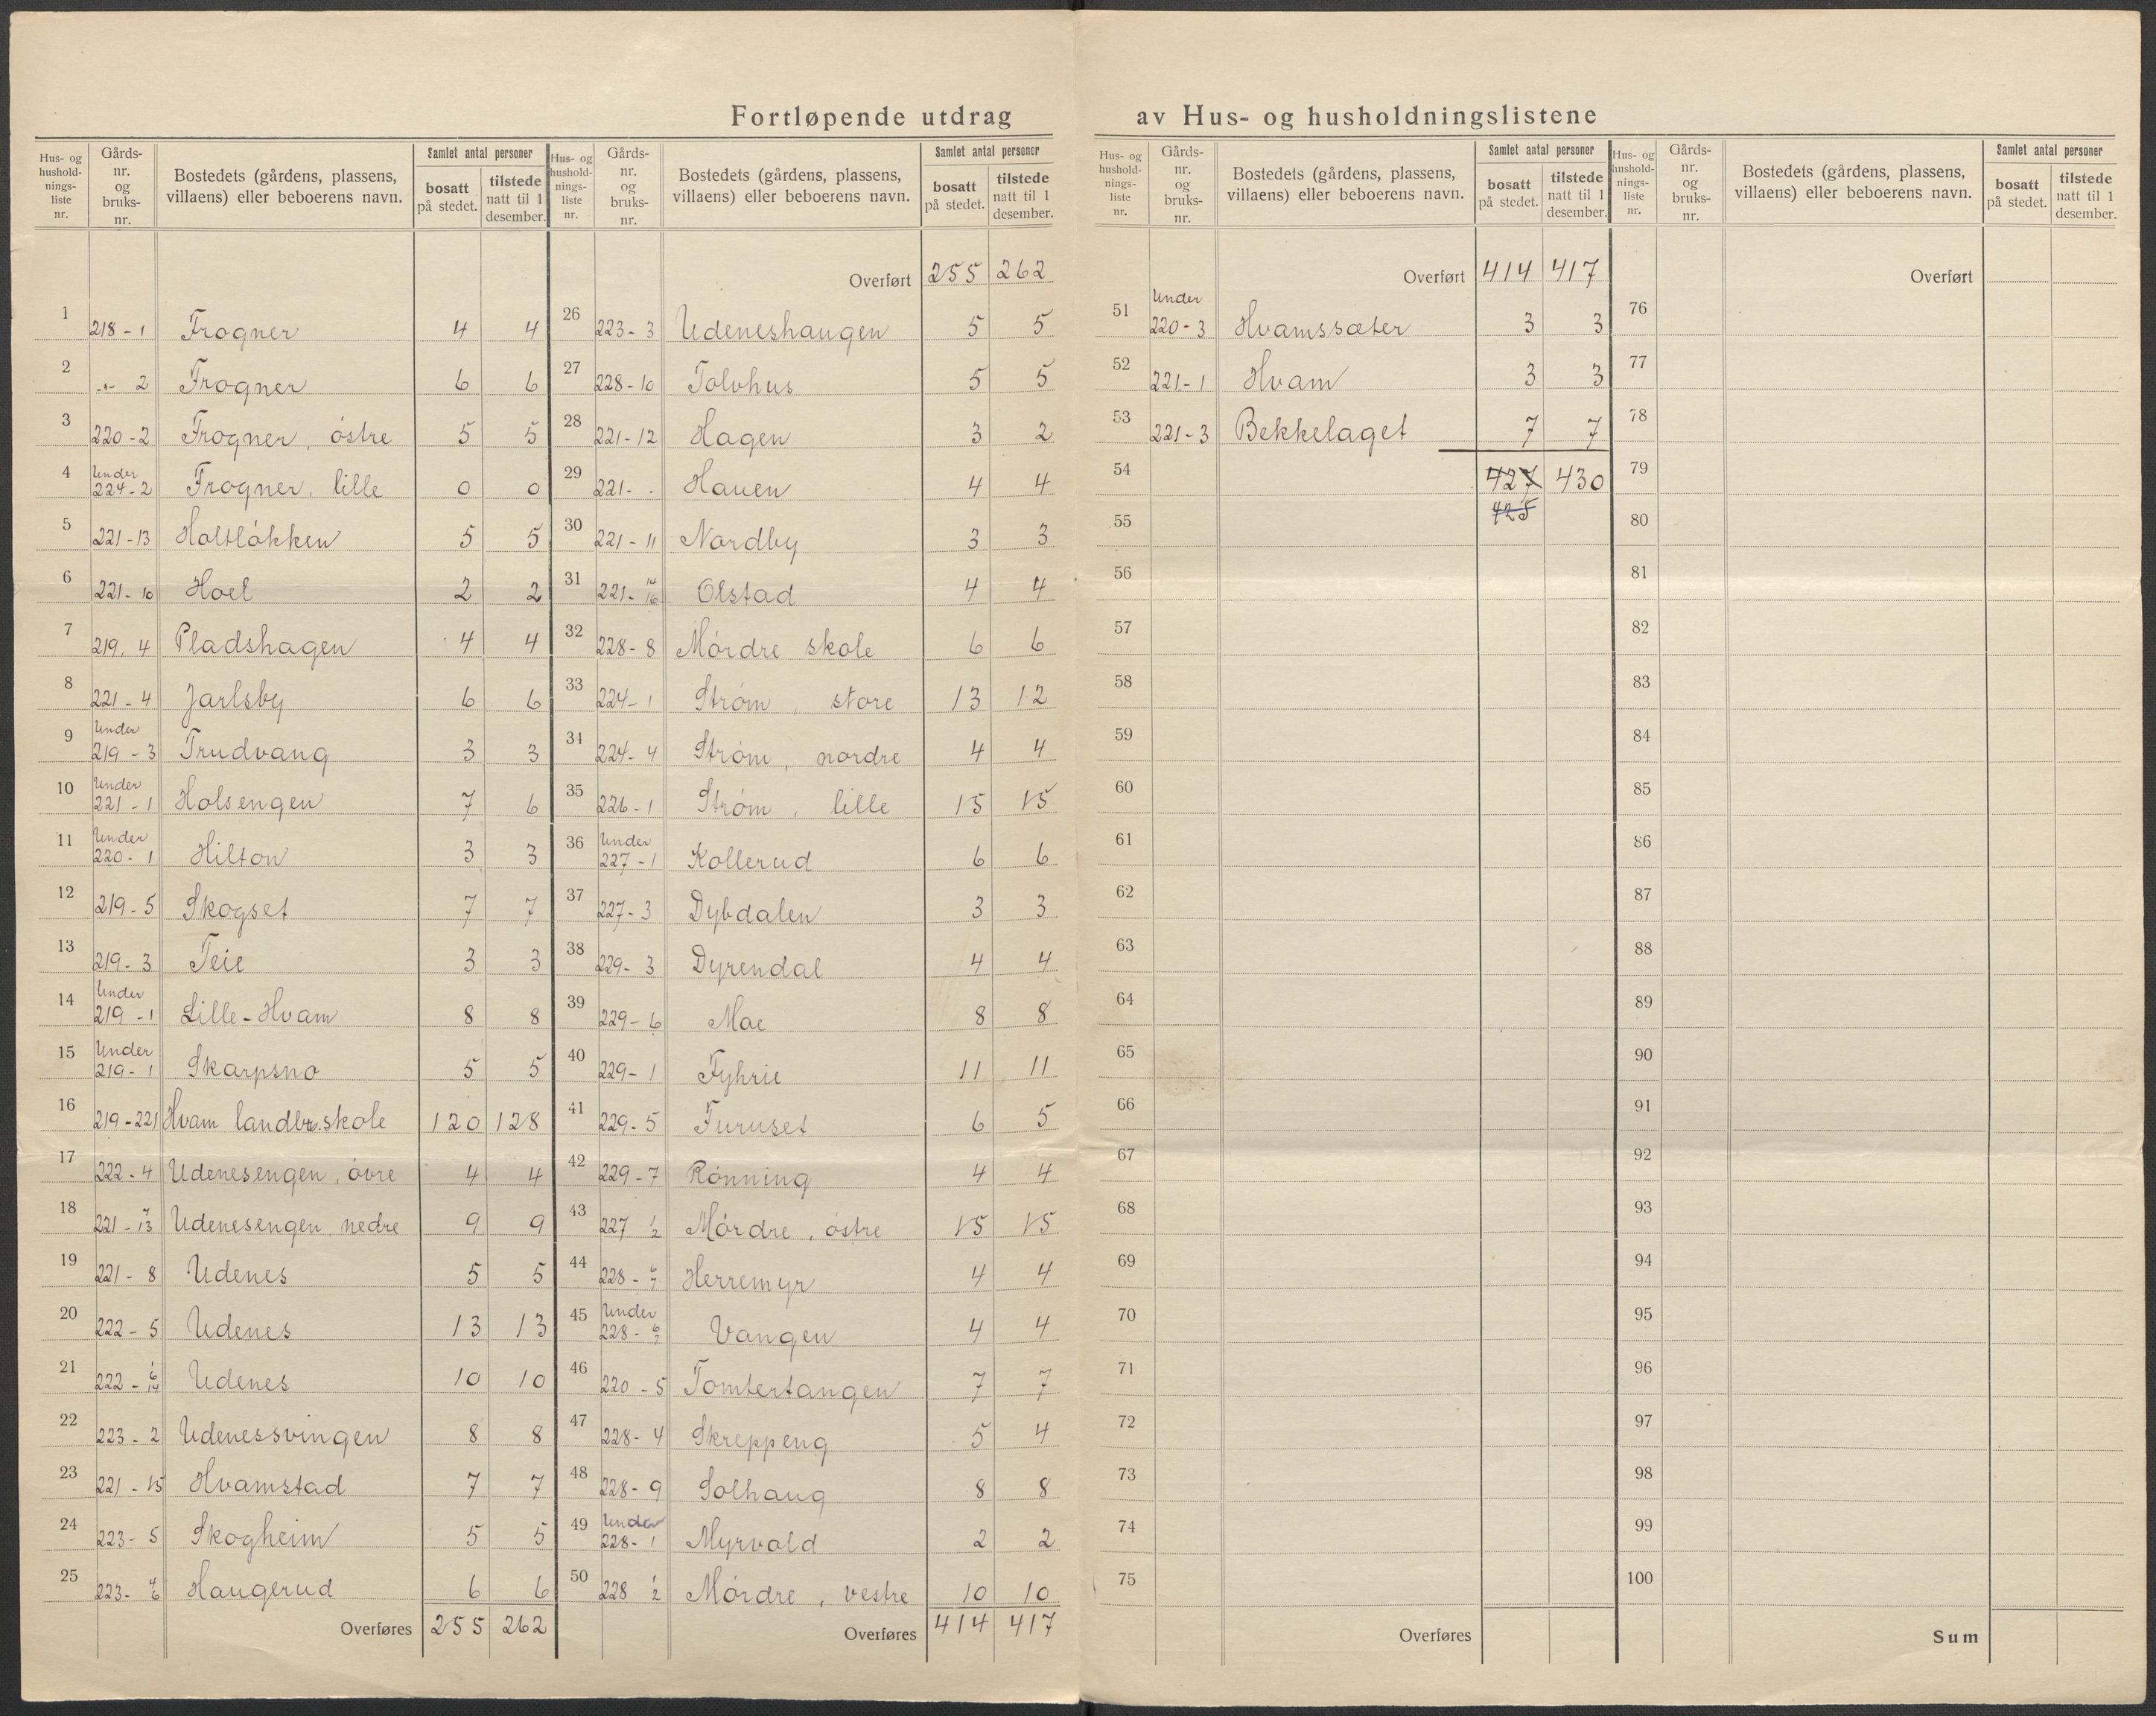 Fortløpende utdrag av Hus- og husholdningslistene
Hus- og hushold- nings- liste nr. Gårds- nr. og bruks- nr. Bostedets (gårdens, plassens, villaens) eller beboerens navn. Samlet antal personer bosatt på stedet. tilstede natt til 1 desember.
1 218 - 1 Frogner 4 4
2 -"- 2 Frogner 6 6
3 220 - 2 Frogner, östre 5 5
4 Under 224 - 2 Frogner, lille 0 0
5 221 - 13 Holtlökken 5 5
6 221 - 10 Hoel 2 2
7 219, 4 Pladshagen 4 4
8 221 - 4 Jarlsby 6 6
9 Under 219 - 3 Trudvang 3 3
10 Under 221 - 1 Holsengen 7 6
11 Under 220 - 1 Hilton 3 3
12 219 - 5 Skogset 7 7
13 219 - 3 Teie 3 3
14 Under 219 - 1 Lille - Hvam 8 8
15 Under 219 - 1 Skarpsno 5 5
16 219 - 221 Hvam landbr.skole 120 128
17 222 - 4 Udenesengen, övre 4 4
18 221 - 7 13 Udenesengen, nedre 9 9
19 221 - 8 Udenes 5 5
20 222 - 5 Udenes 13 13
21 222 - Udenes 10 10
22 223 - 2 Udenessvingen 8 8
23 221 - 15 Hvamstad 7 7
24 223 - 5 Skogheim 5 5
25 223 - 4 6 Haugerud 6 6
Overføres 255 262
Hus- og hushold- nings- liste nr. Gårds- nr. og bruks- nr. Bostedets (gårdens, plassens, villaens) eller beboerens navn. Samlet antal personer bosatt på stedet. tilstede natt til 1 desember.
Overført 255 262
26 223 - 3 Udeneshaugen 5 5
27 228 - 10 Tolvhus 5 5
28 221 - 12 Hagen 3 2
29 221 - Hauen 4 4
30 221 - 11 Nordby 3 3
31 221 - 14 16 Olstad 4 4
32 228 - 8 Mördre skole 6 6
33 224 - 1 Ström, store 13 12
34 224 - 4 Ström, nordre 4 4
35 226 - 1 Ström, lille 15 15
36 Under 227 - 1 Kollerud 6 6
37 227 - 3 Dybdalen 3 3
38 229 - 3 Dyrendal 4 4
39 229 - 6 Moe 8 8
40 229 - 1 Fyhrie 11 11
41 229 - 5 Furuset 6 5
42 229 - 7 Rönning 4 4
43 227 1 2 Mördre, östre 15 15
44 228 - 6 7 Herremyr 4 4
45 Under 228 - 6 7 Vangen 4 4
46 220 - 5 Tomtertangen 7 7
47 228 - 4 Skreppeng 5 4
48 228 - 9 Solhaug 8 8
49 Under 228 - 1 Myrvold 2 2
50 228 1 2 Mördre, vestre 10 10
Overføres 414 417
Hus- og hushold- nings- liste nr. Gårds- nr. og bruks- nr. Bostedets (gårdens, plassens, villaens) eller beboerens navn. Samlet antal personer bosatt på stedet. tilstede natt til 1 desember.
Overført 414 417
51 Under 220 - 3 Hvamssæter 3 3
52 221 - 1 Hvam 3 3
53 221 - 3 Bekkelaget 7 7
54 427 430
55 428
56
57
58
59
60
61
62
63
64
65
66
67
68
69
70
71
72
73
74
75
Overføres
Hus- og hushold- nings- liste nr. Gårds- nr. og bruks- nr. Bostedets (gårdens, plassens, villaens) eller beboerens navn. Samlet antal personer bosatt på stedet. tilstede natt til 1 desember.
Overført
76
77
78
79
80
81
82
83
84
85
86
87
88
89
90
91
92
93
94
95
96
97
98
99
100
Sum